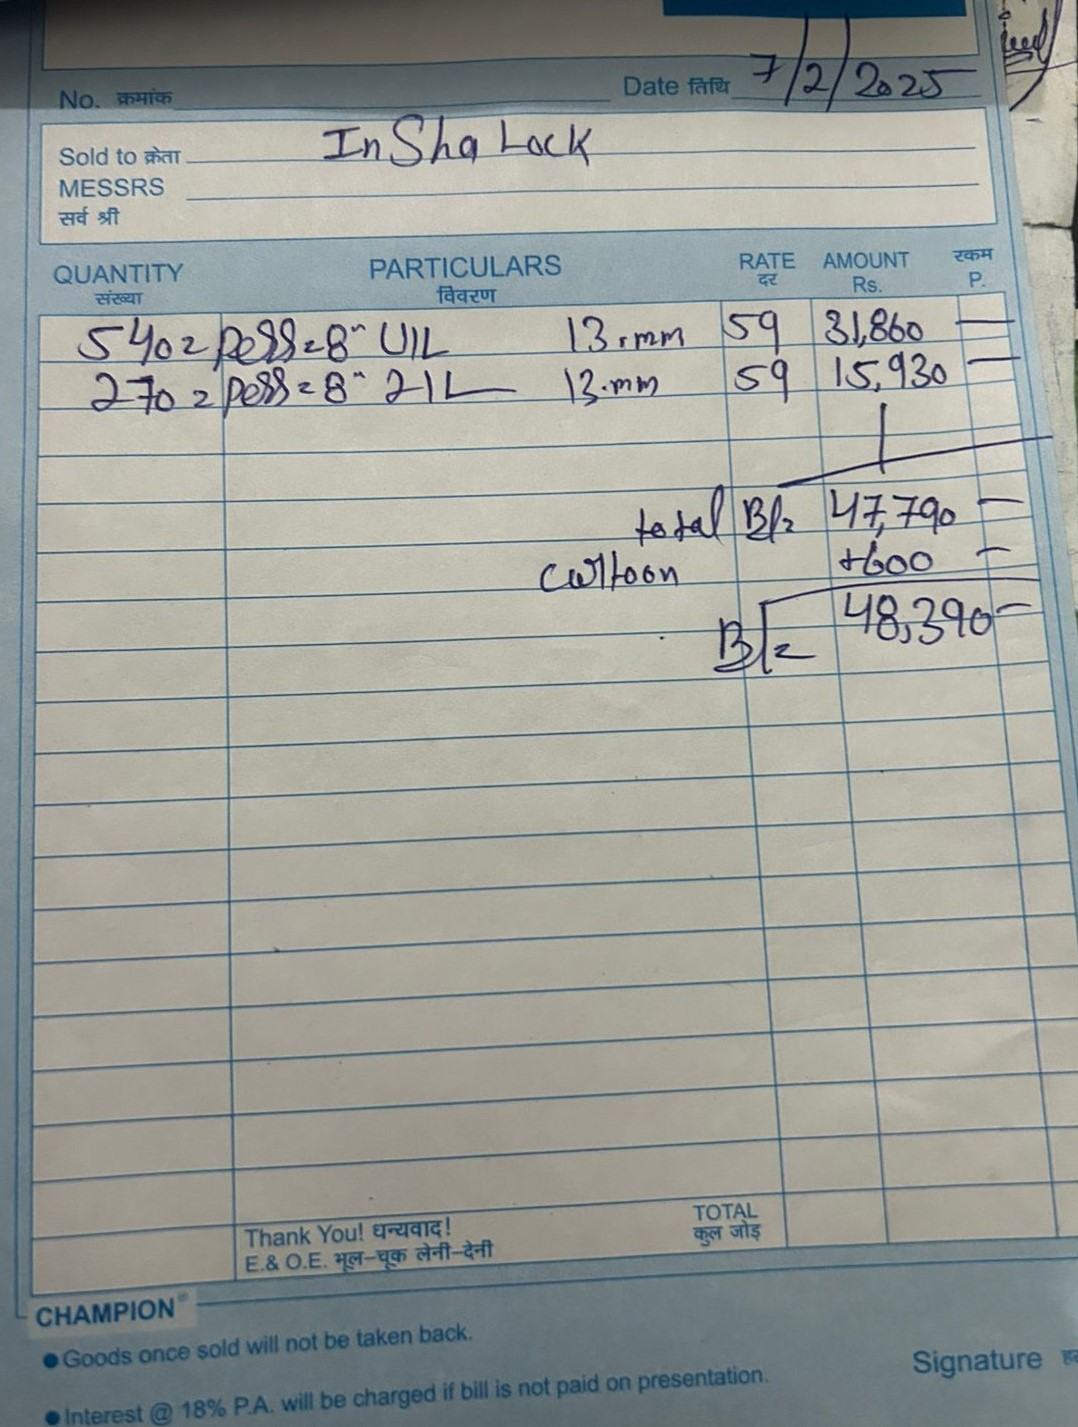 No. क्रमांक Date तिथि 7/2/2025
Sold to क्रेता InSha Lock
MESSRS
सर्व श्री
QUANTITY PARTICULARS RATE AMOUNT रकम
संख्या विवरण दर Rs. P.
540= pess=8" U1L 13.mm 59 31,860 —
270= pess=8" 21L 13.mm 59 15,930 —
total B/= 47,790 —
cartoon +600 —
B/= 48,390 —
Thank You! धन्यवाद! TOTAL
E.& O.E. भूल-चूक लेनी-देनी कुल जोड़
CHAMPION®
● Goods once sold will not be taken back.
Signature
● Interest @ 18% P.A. will be charged if bill is not paid on presentation.